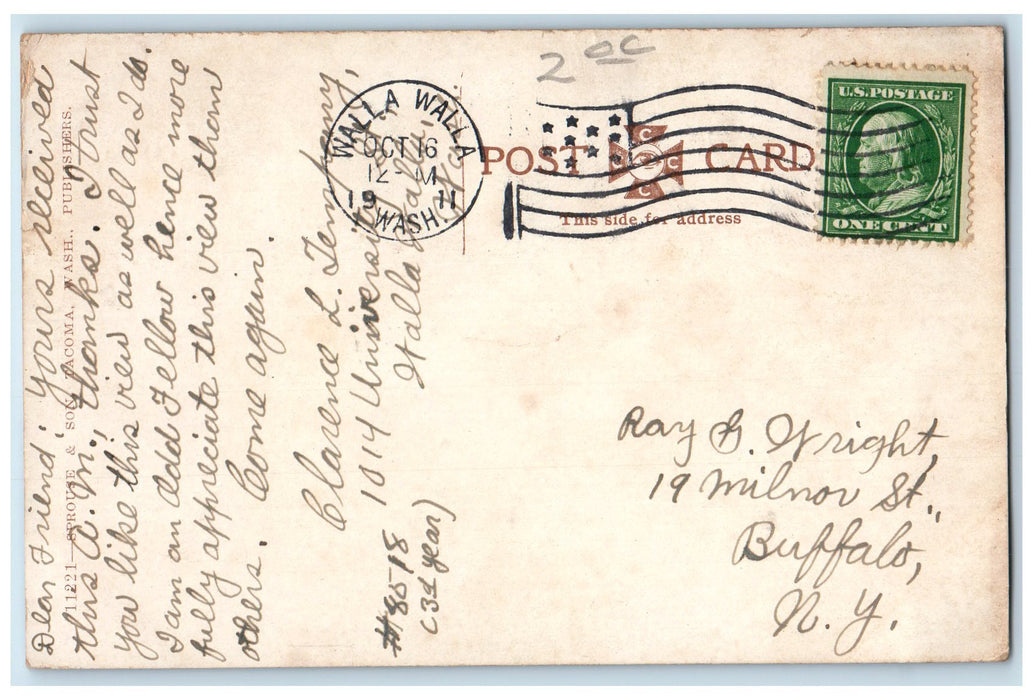 Dear Friend: Yours received
this A.M.; thanks. I trust
you like this view as well as I do.
I am an Odd Fellow hence more
fully appreciate this view them
others. Come again.
Clarence L. Tempany,
1014 University
Walla Walla
#8518
(3d year)
11221—SPROUSE & SON, TACOMA, WASH., PUBLISHERS.
WALLA WALLA
OCT 16
12-M
1911
WASH.
2 oc
POST CARD
C C C C
This side for address
U.S. POSTAGE
ONE CENT
Ray G. Wright,
19 Milnor St.,
Buffalo,
N.Y.